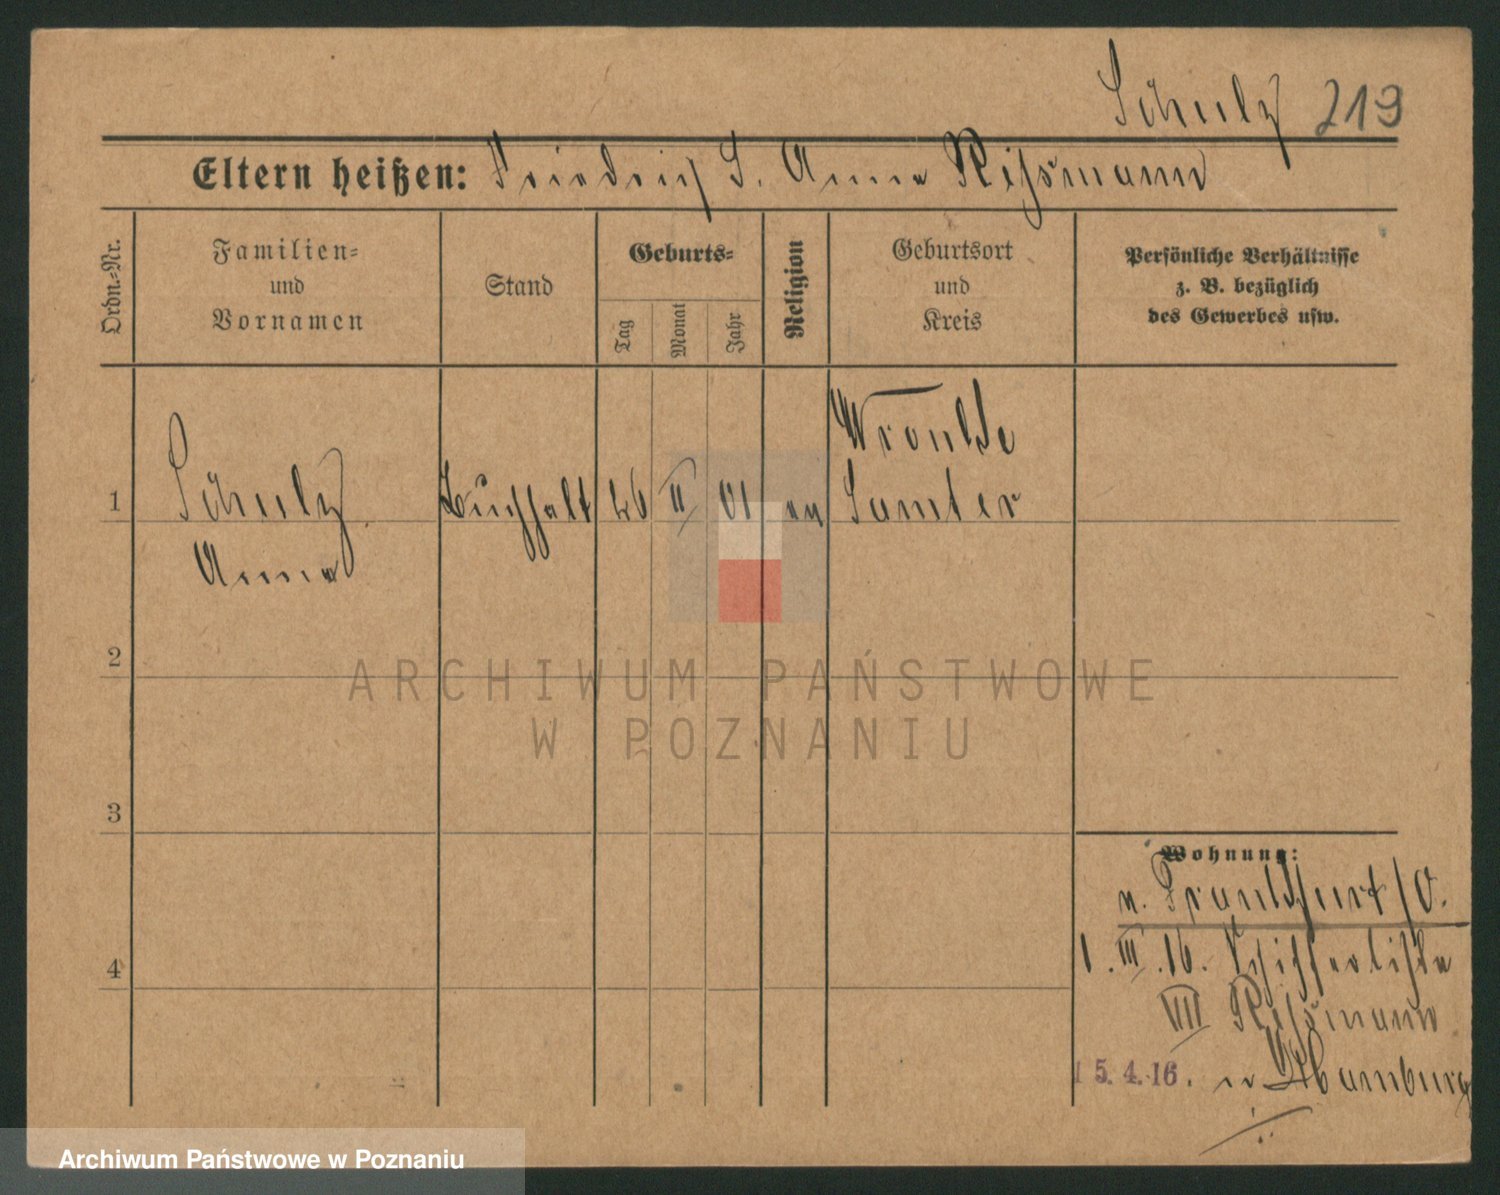 Schulz 219
Eltern heißen: Friedrich S. Anna Reissmann
Ordn.-Nr.
Familien-
und
Vornamen
Stand
Geburts-
Tag
Monat
Jahr
Religion
Geburtsort
und
Kreis
Persönliche Verhältnisse
z. B. bezüglich
des Gewerbes usw.
Wronke
1 Schulz Buchhalt 26 II 01 ev Samter
Anna
2
ARCHIWUM PAŃSTWOWE
W POZNANIU
3
Wohnung:
n. Frankfurt/O.
4
1. III. 16.
VII Reissmann
15.4.16. n Hamburg
Archiwum Państwowe w Poznaniu